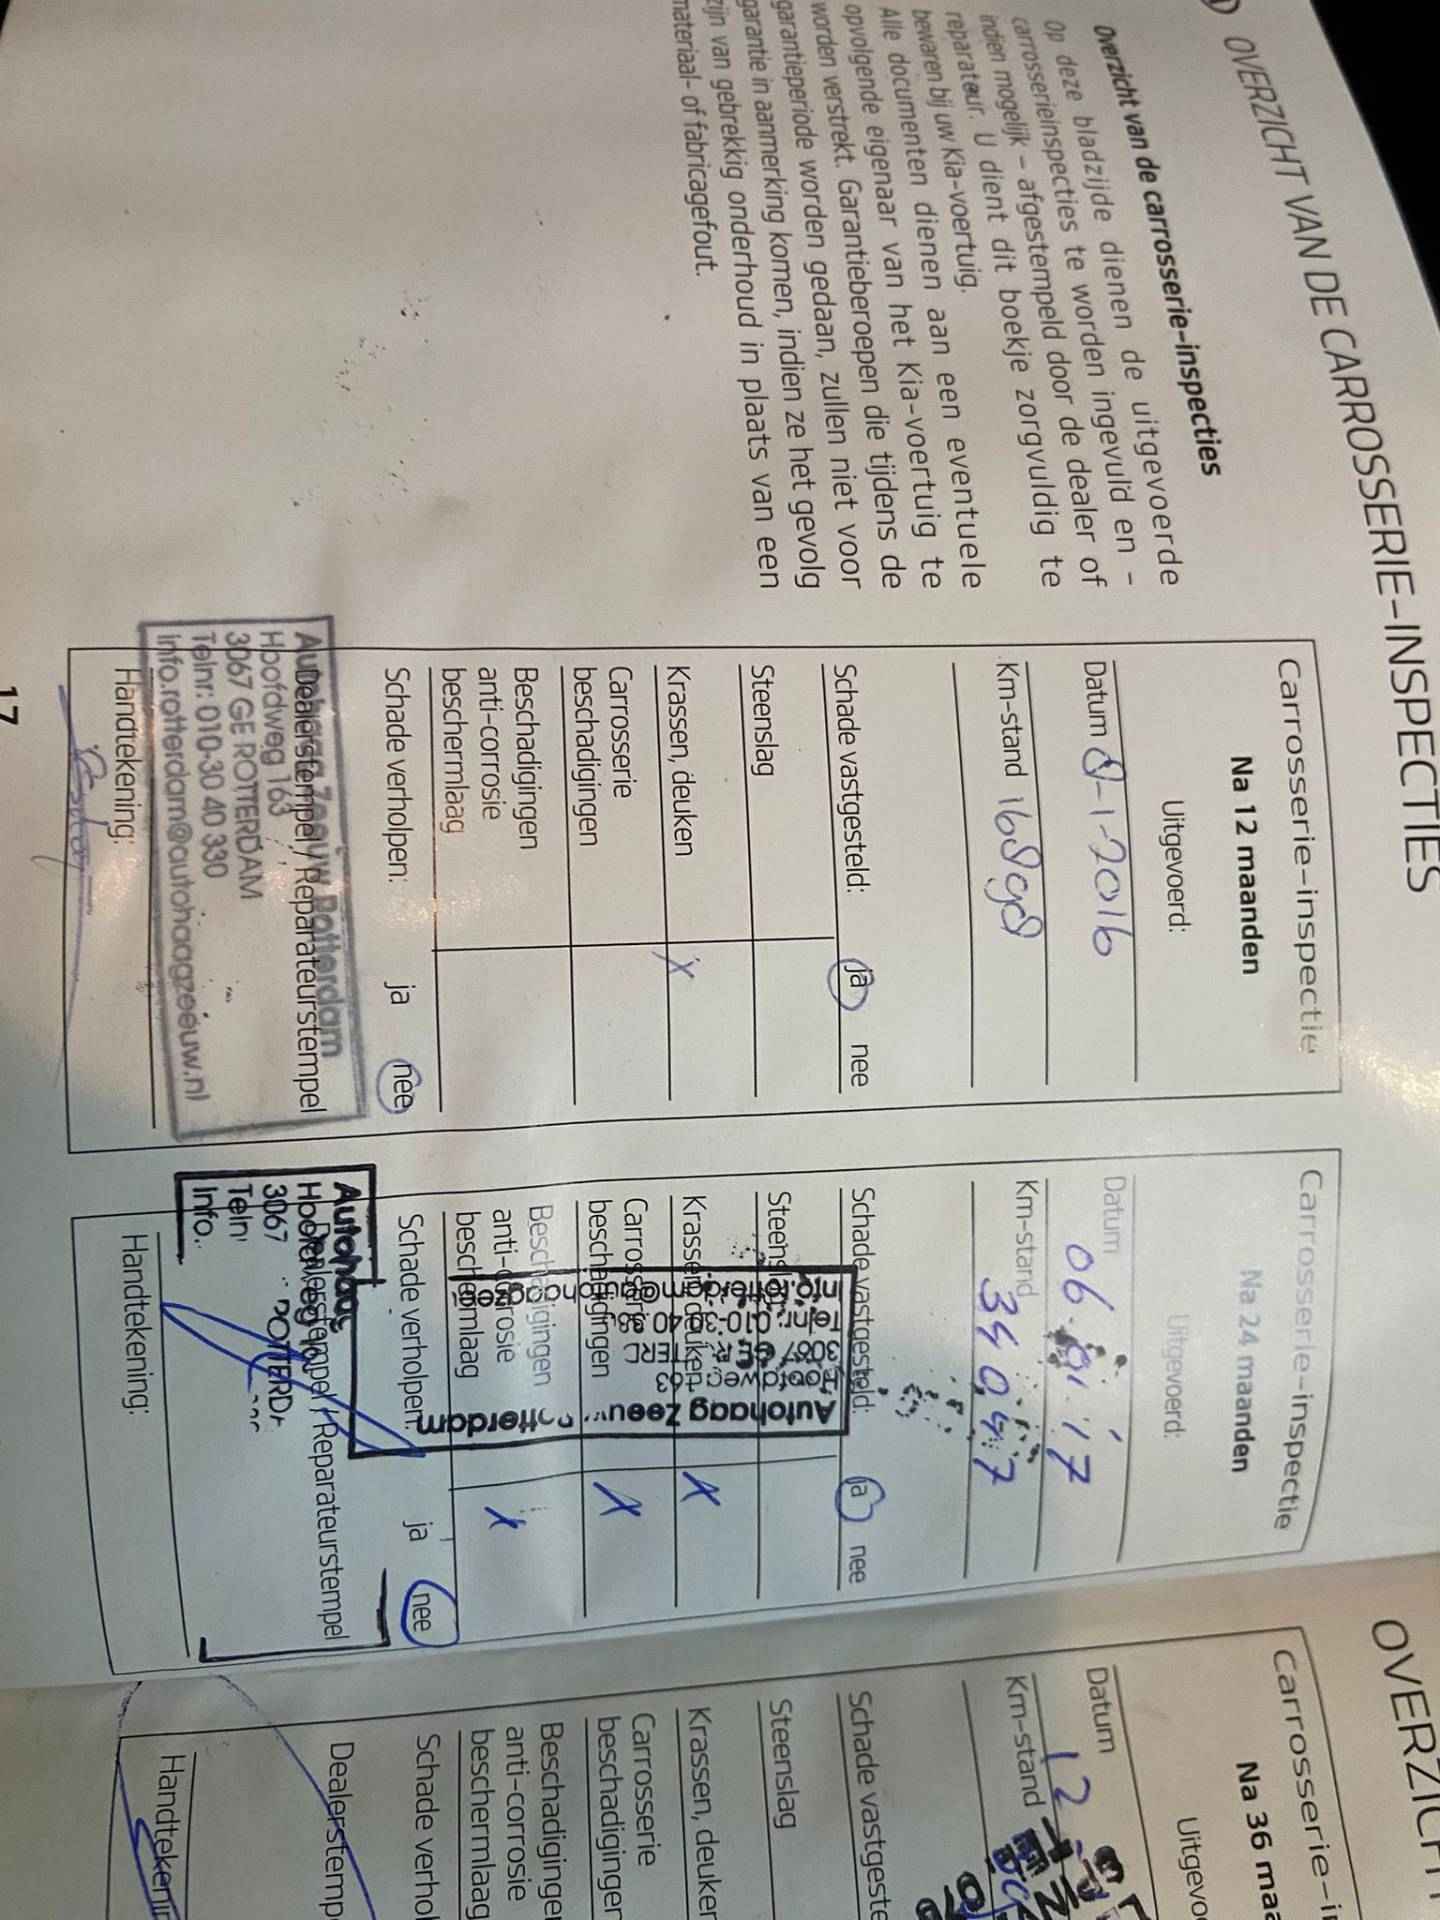 OVERZICHT VAN DE CARROSSERIE-INSPECTIES
Overzicht van de carrosserie-inspecties
Op deze bladzijde dienen de uitgevoerde
carrosserieinspecties te worden ingevuld en -
indien mogelijk - afgestempeld door de dealer of
reparateur. U dient dit boekje zorgvuldig te
bewaren bij uw Kia-voertuig.
Alle documenten dienen aan een eventuele
opvolgende eigenaar van het Kia-voertuig te
worden verstrekt. Garantieberoepen die tijdens de
garantieperiode worden gedaan, zullen niet voor
garantie in aanmerking komen, indien ze het gevolg
zijn van gebrekkig onderhoud in plaats van een
materiaal- of fabricagefout.
Carrosserie-inspectie
Na 12 maanden
Uitgevoerd:
Datum 8-1-2016
Km-stand 16898
Schade vastgesteld: ja nee
Steenslag
Krassen, deuken x
Carrosserie
beschadigingen
Beschadigingen
anti-corrosie
beschermlaag
Schade verholpen: ja nee
Dealerstempel / Reparateurstempel
Rotterdam
Hoofdweg 163
3067 GE ROTTERDAM
Telnr: 010-30 40 330
info.rotterdam@autohaagzeeuw.nl
Handtekening:
17
Carrosserie-inspectie
Na 24 maanden
Uitgevoerd:
Datum 06.01.'17
Km-stand 34047
Schade vastgesteld: ja nee
Steenslag
Krassen, deuken x
Carrosserie
beschadigingen x
Beschadigingen
anti-corrosie x
beschermlaag
Schade verholpen: ja nee
Autohaag Zeeuw Rotterdam
Dealerstempel / Reparateurstempel
Autohaag
Hoofdweg
3067
Teln
Info.
Handtekening:
Carrosserie-i
Na 36 maa
Uitgevo
Datum 12
Km-stand
Schade vastgeste
Steenslag
Krassen, deuken
Carrosserie
beschadigingen
Beschadigingen
anti-corrosie
beschermlaag
Schade verhol
Dealerstemp
Handtekenin